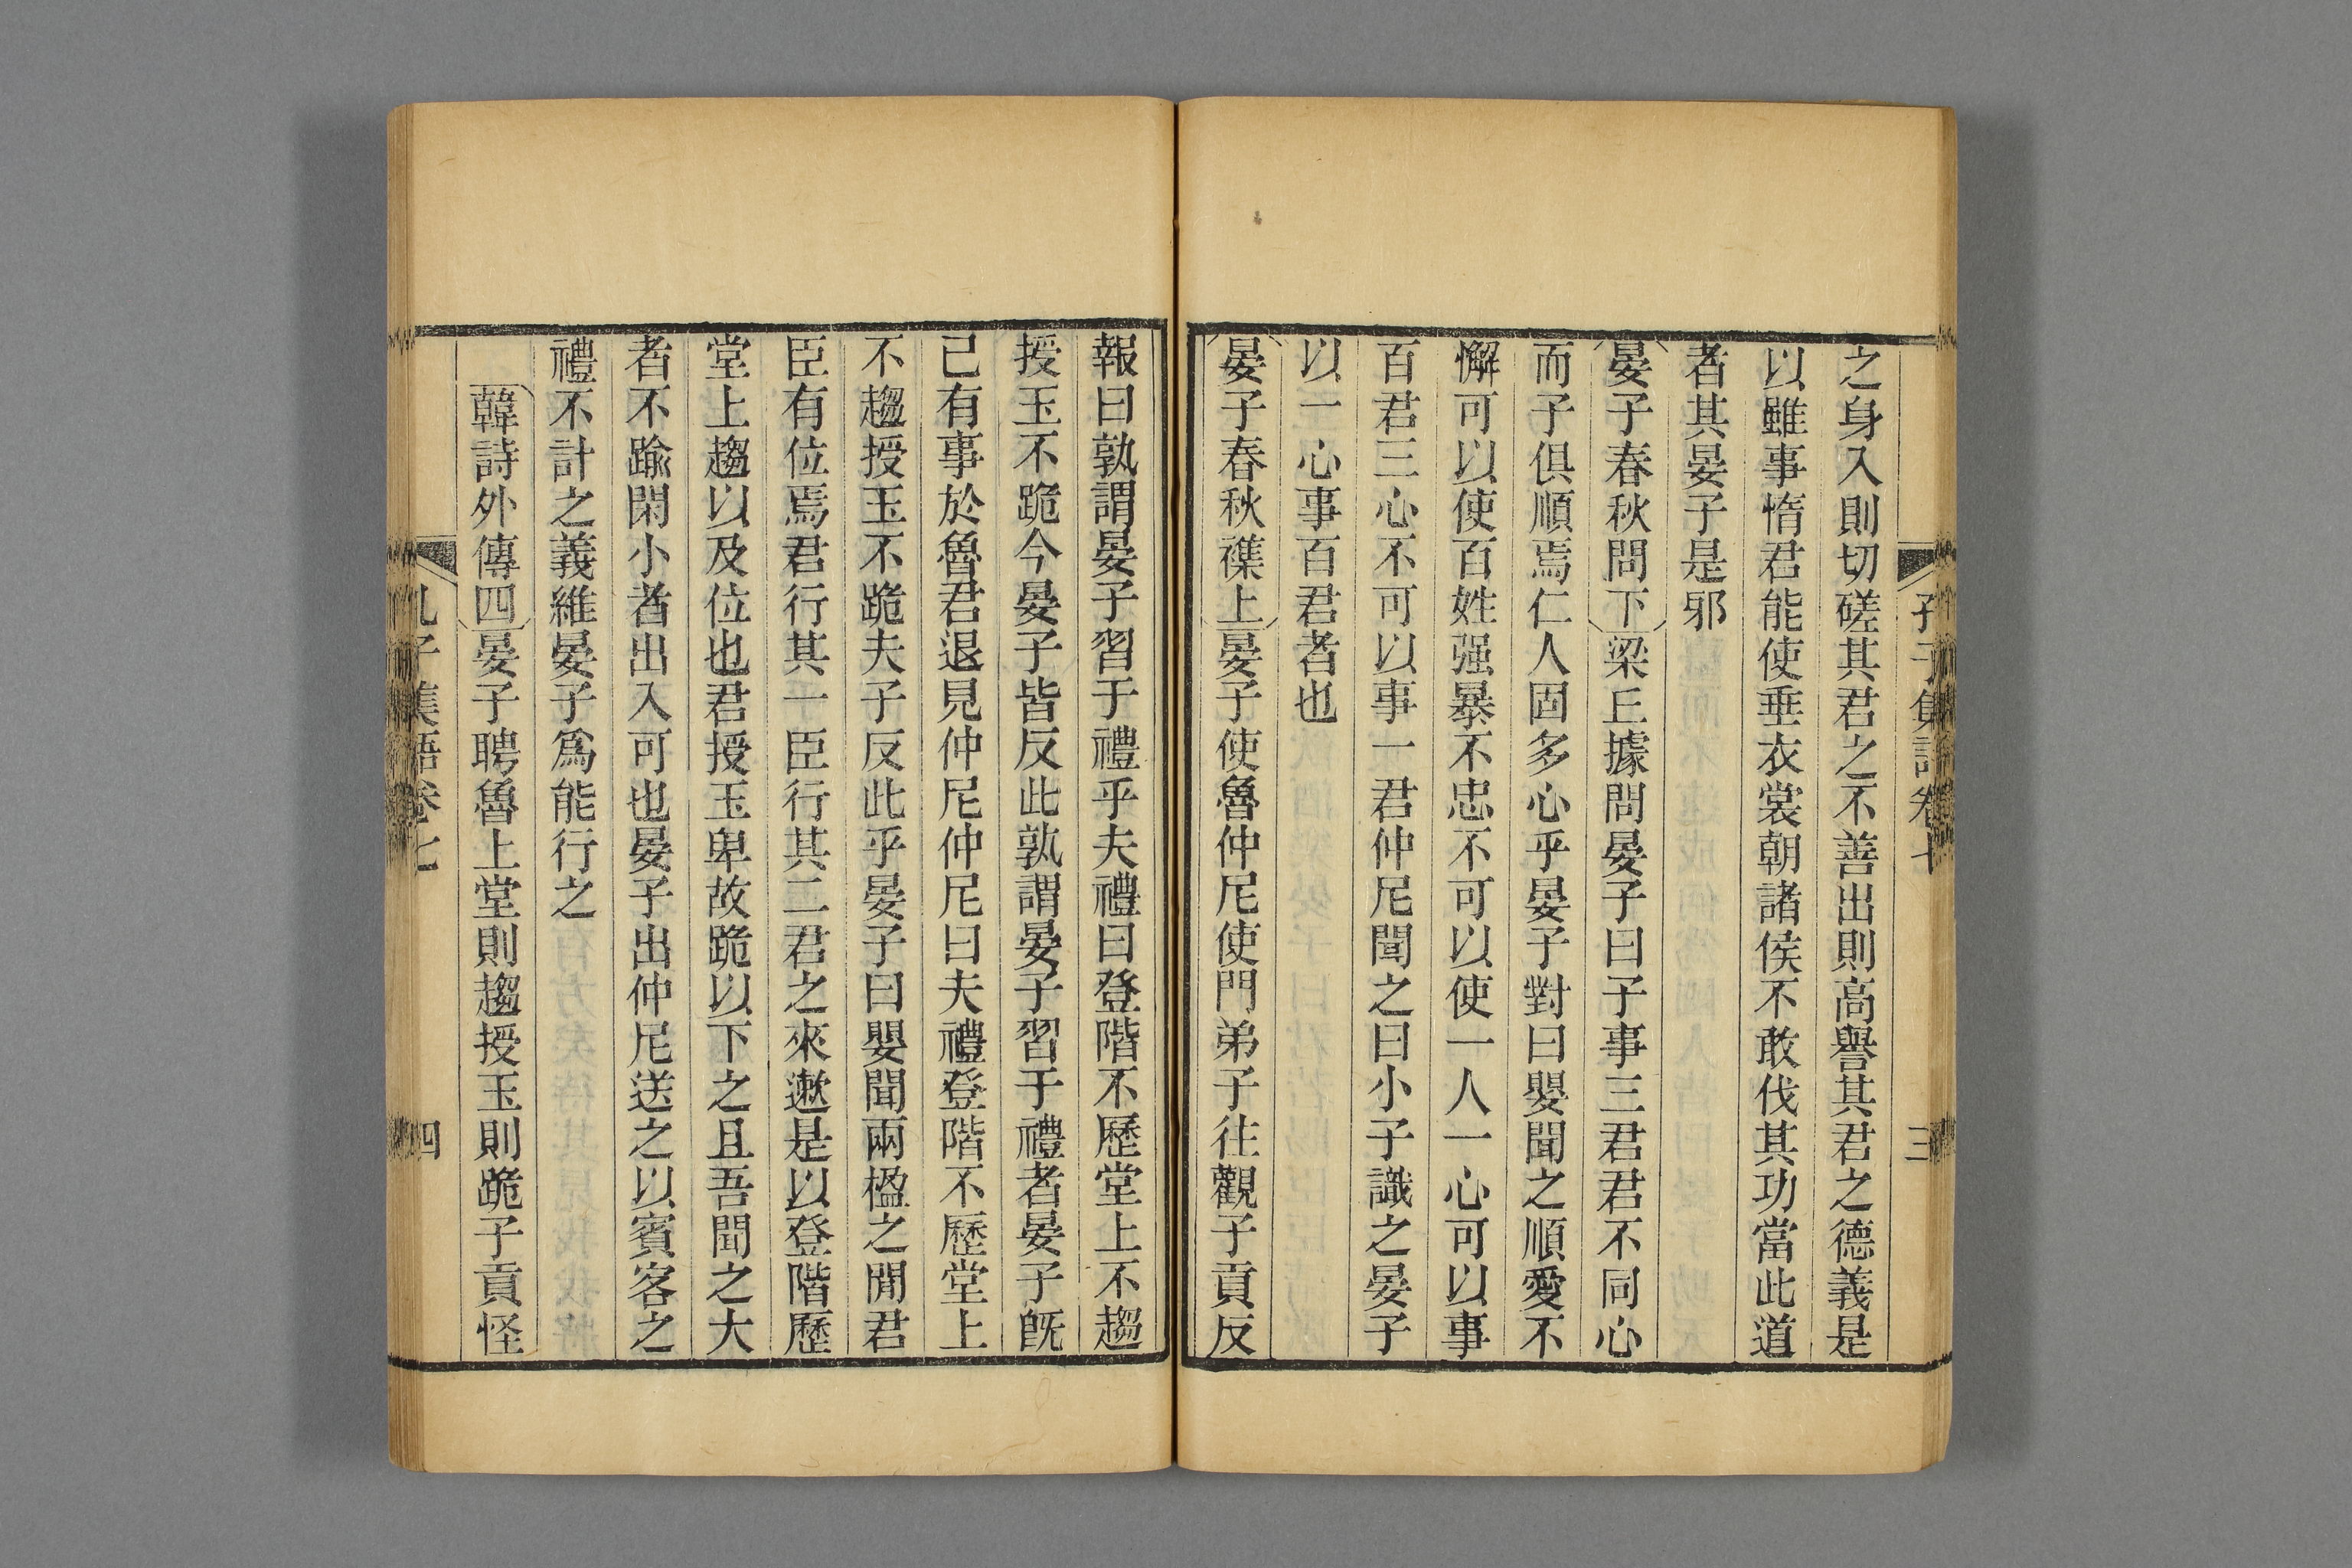 孔子集語卷七
三
之身入則切磋其君之不善出則高譽其君之德義是
以雖事惰君能使垂衣裳朝諸侯不敢伐其功當此道
者其晏子是邪
晏子春秋問下梁丘據問晏子曰子事三君君不同心
而子俱順焉仁人固多心乎晏子對曰嬰聞之順愛不
懈可以使百姓强暴不忠不可以使一人一心可以事
百君三心不可以事一君仲尼聞之曰小子識之晏子
以一心事百君者也
晏子春秋襍上晏子使魯仲尼使門弟子往觀子貢反
報曰孰謂晏子習于禮乎夫禮曰登階不歷堂上不趨
授玉不跪今晏子皆反此孰謂晏子習于禮者晏子旣
已有事於魯君退見仲尼仲尼曰夫禮登階不歷堂上
不趨授玉不跪夫子反此乎晏子曰嬰聞兩楹之閒君
臣有位焉君行其一臣行其二君之來遬是以登階歷
堂上趨以及位也君授玉卑故跪以下之且吾聞之大
者不踰閑小者出入可也晏子出仲尼送之以賓客之
禮不計之義維晏子爲能行之
韓詩外傳四晏子聘魯上堂則趨授玉則跪子貢怪
孔子集語卷七
四